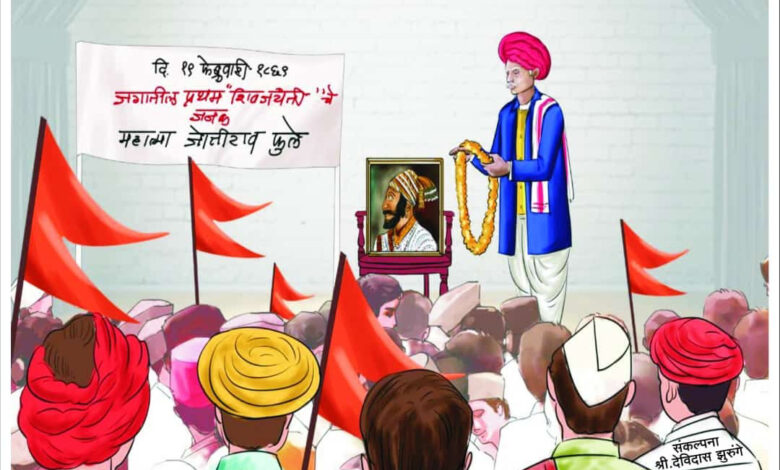 दि. १९ फेब्रुवारी १८६९
जगातील प्रथम "शिवजयंती" चे
जनक
महात्मा जोतीराव फुले
संकल्पना
श्री.देविदास झुरुंगे